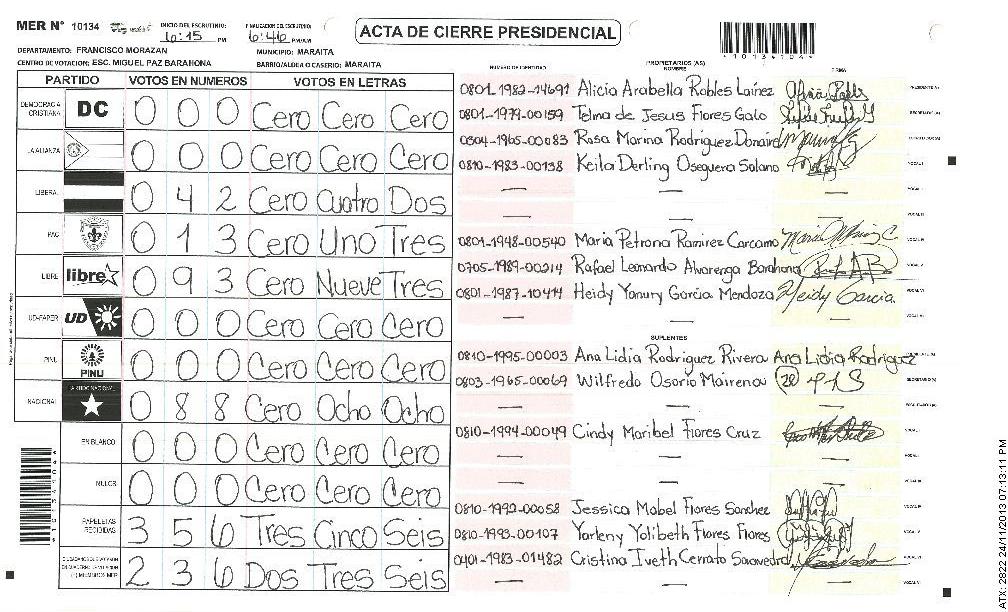 MER N° 10134
INICIO DEL ESCRUTINIO: 6:15 PM
FINALIZACION DEL ESCRUTINIO: 6:46 PM/AM
ACTA DE CIERRE PRESIDENCIAL
DEPARTAMENTO: FRANCISCO MORAZAN MUNICIPIO: MARAITA
CENTRO DE VOTACION: ESC. MIGUEL PAZ BARAHONA BARRIO/ALDEA O CASERIO: MARAITA
*10134104*
PARTIDO VOTOS EN NUMEROS VOTOS EN LETRAS
DEMOCRACIA CRISTIANA DC 0 0 0 Cero Cero Cero
LA ALIANZA 0 0 0 Cero Cero Cero
LIBERAL 0 4 2 Cero Cuatro Dos
PAC 0 1 3 Cero Uno Tres
LIBRE libre 0 9 3 Cero Nueve Tres
UD-FAPER UD 0 0 0 Cero Cero Cero
PINU PINU 0 0 0 Cero Cero Cero
NACIONAL PARTIDO NACIONAL 0 8 8 Cero Ocho Ocho
EN BLANCO 0 0 0 Cero Cero Cero
NULOS 0 0 0 Cero Cero Cero
PAPELETAS RECIBIDAS 3 5 6 Tres Cinco Seis
2 3 6 Dos Tres Seis
*10134104*
NUMERO DE IDENTIDAD PROPIETARIOS (AS) NOMBRE FIRMA
0801-1982-14691 Alicia Arabella Robles Laínez PRESIDENTE (A)
0801-1979-00159 Telma de Jesus Flores Galo SECRETARIO (A)
0304-1965-00083 Rosa Marina Rodriguez Donaird
0810-1983-00138 Keila Derling Oseguera Solano VOCAL I
— — — VOCAL II
— — — VOCAL III
0801-1948-00540 Maria Petrona Ramirez Carcamo VOCAL IV
0705-1989-00214 Rafael Leonardo Alvarenga Barahona VOCAL V
0801-1987-10414 Heidy Yanury Garcia Mendoza Heidy Garcia VOCAL VI
— — — VOCAL VII
SUPLENTES
0810-1995-00003 Ana Lidia Rodriguez Rivera Ana Lidia Rodriguez
0803-1965-00069 Wilfredo Osorio Mairena SECRETARIO (A)
— — —
0810-1994-00049 Cindy Maribel Flores Cruz VOCAL I
— — — VOCAL II
— — — VOCAL III
0810-1992-00058 Jessica Mabel Flores Sanchez VOCAL IV
0810-1993-00107 Yarleny Yolibeth Flores Flores VOCAL V
0401-1983-01482 Cristina Iveth Cerrato Saavedra VOCAL VI
— — — VOCAL VII
ATX: 2822 24/11/2013 07:13:11 PM